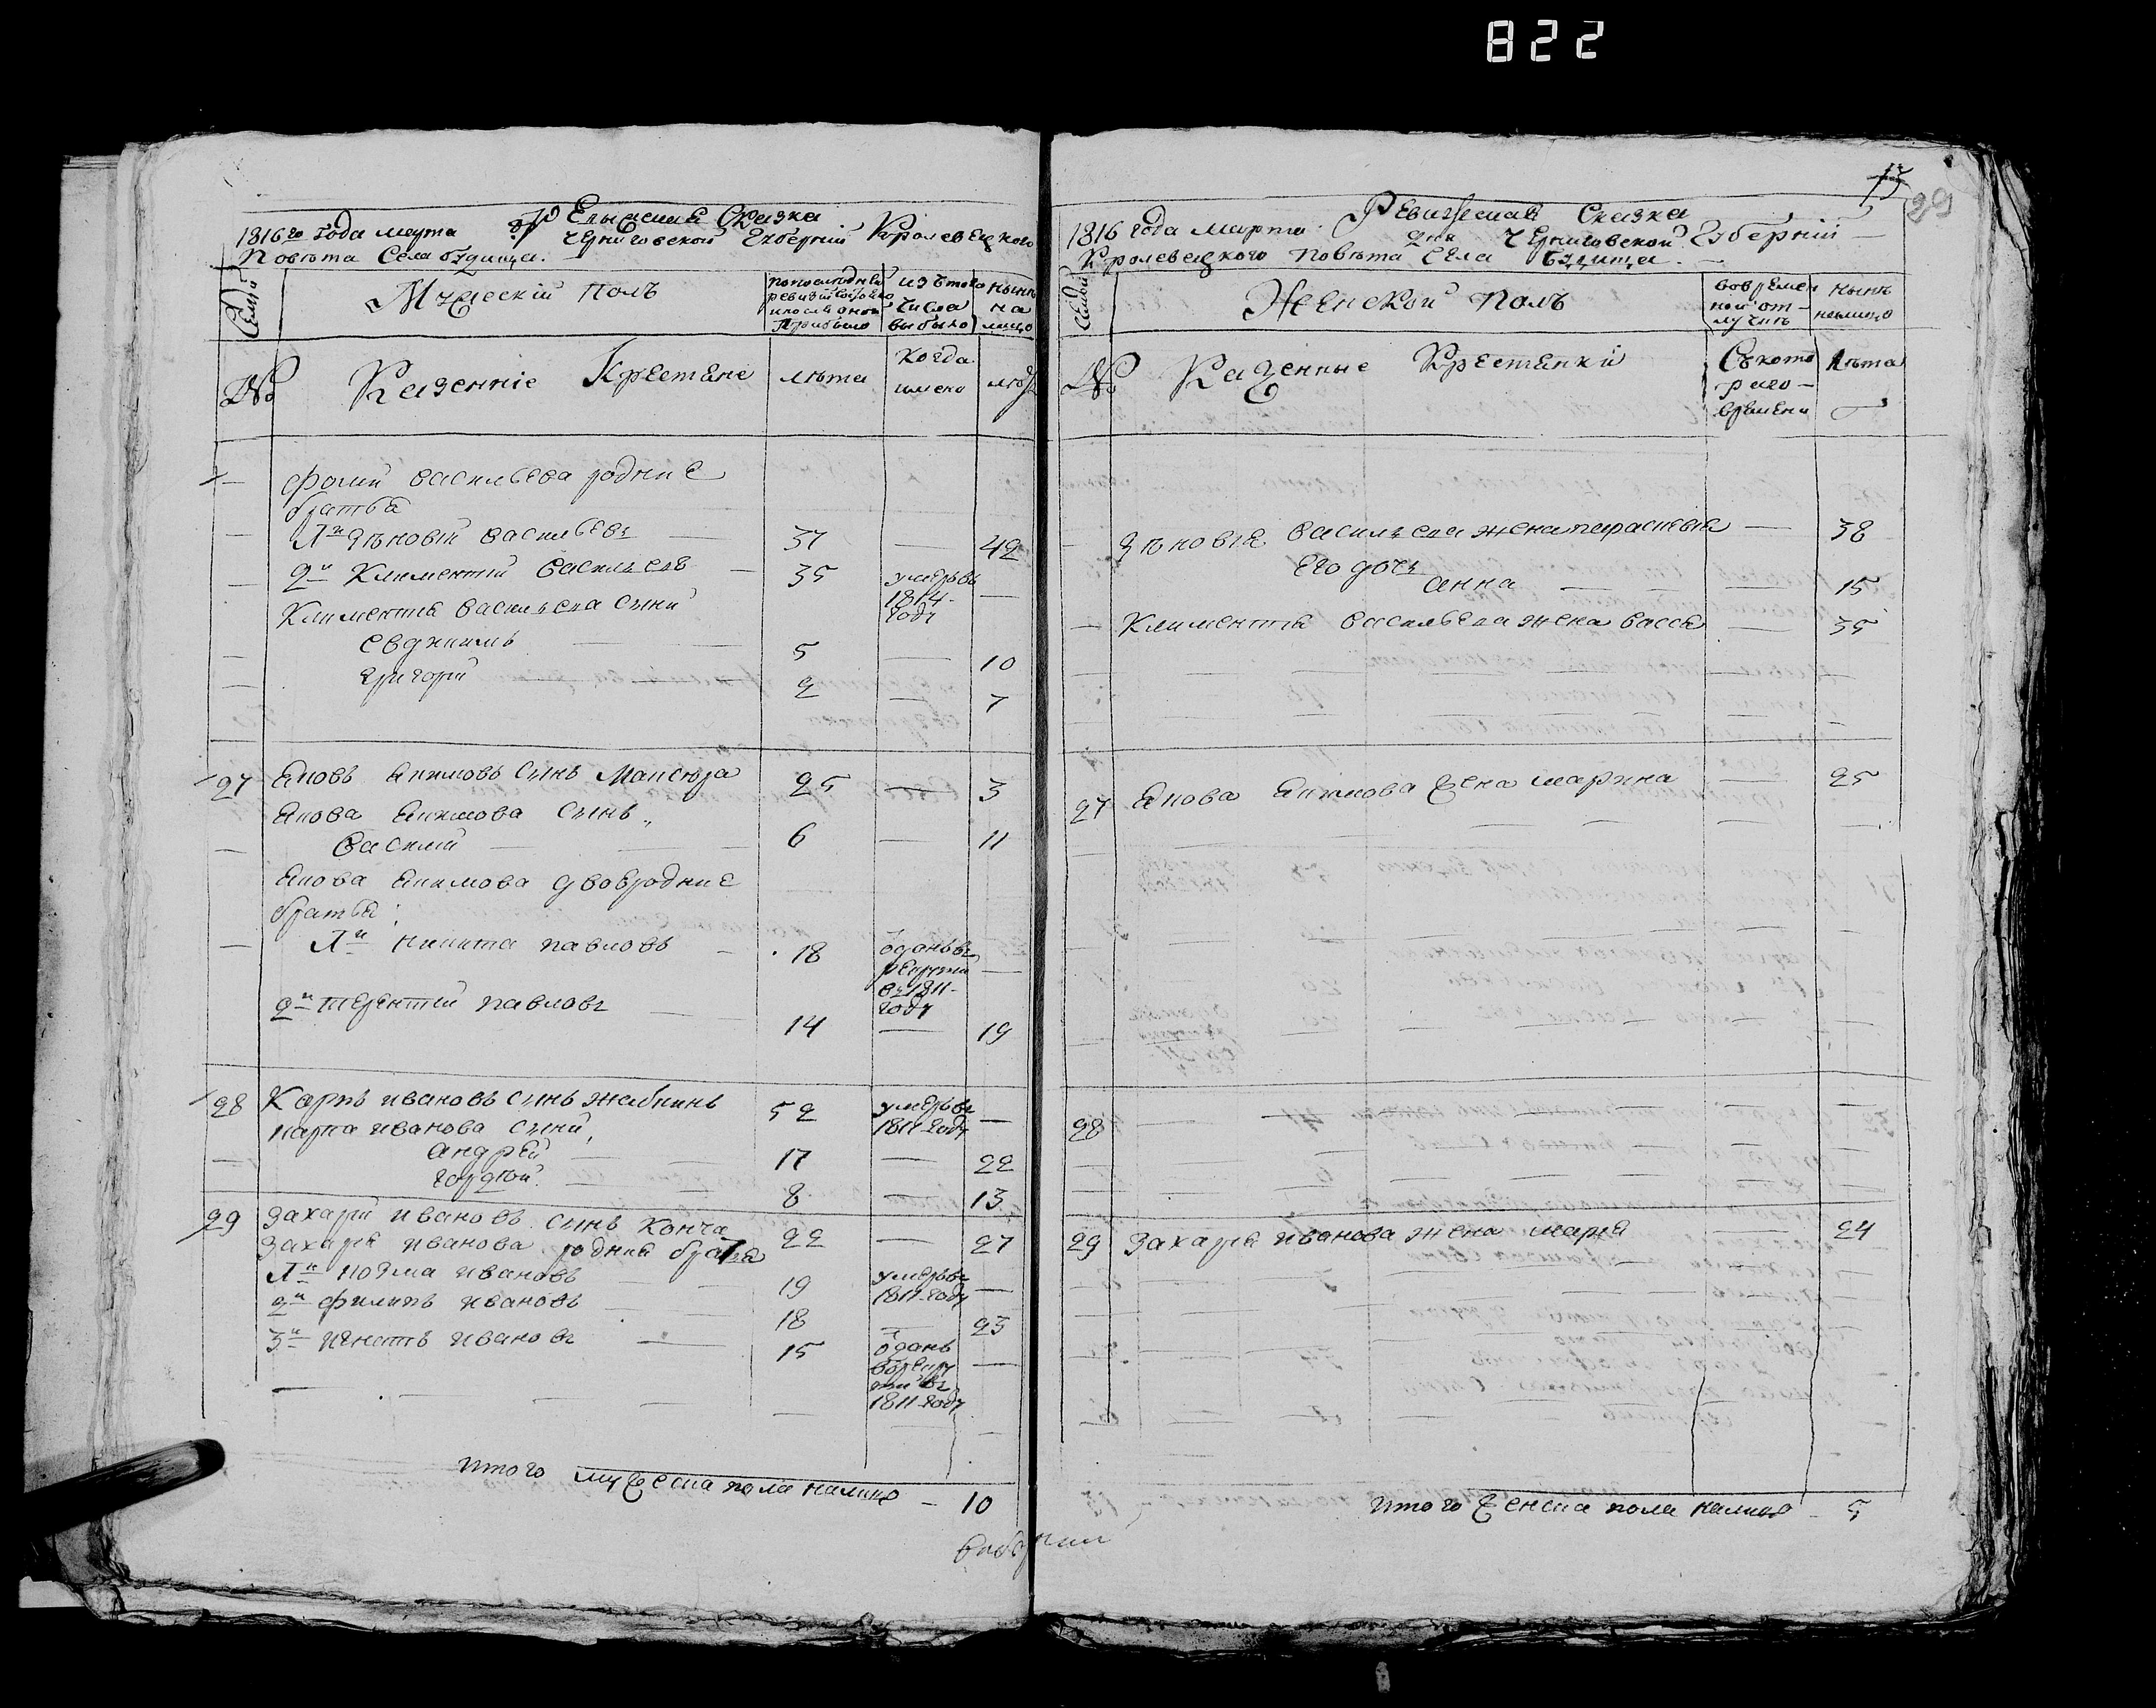 822
Ревизская Сказка
1816го года марта дня Черниговской Губерній Кролевецкого
Повѣта Села будища.
Семьи
Мужескій полъ
по последней ревизіи состояло и после оной прибыло
изъ того числа выбыло
нынѣ на лицо
№
Казенніе Крестяне
лѣта
когда имено
лѣта
фомы васильева родніе
братья
1й Зѣновій васильевъ 37 — 42
2й Климентій васильевъ — 35 умеръ въ 1814 году —
Климентія васильева сыни
евдкимъ 5 — 10
григорій 2 — 7
27 Яковъ Якимовъ сынъ Мансюра 25 — 3
Якова Якимова сынъ
василий — 6 — 11
Якова Якимова двоюродние
братья:
1й никита павловъ — 18 отданъ въ рекруты въ 1811 году —
2й терентій павловъ 14 — 19
28 Карпъ ивановъ сынъ жабкинъ 52 умеръ въ 1811 году —
карпа иванова сыни
андрей 17 — 22
гордѣй 8 — 13
29 Захарій ивановъ сынъ Конча 22 — 27
Захарія иванова родния братя
1й козма ивановъ 19 умеръ въ 1811 году —
2й филипъ ивановъ 18 — 23
3й игнатъ ивановъ 15 отданъ в рекруты въ 1811 году —
итого мужеска пола налицо — 10
15
29
Ревизская Сказка
1816 года марта дня Черниговской Губерній
Кролевецкого повѣта села будища.
Семьи
Женской полъ
во временной отлучкѣ
нынѣ налицо
№
Казенные Крестянкі
Съ которого времени
лѣта
Зѣновія васильева жена параскевія — 38
Его дочь
анна — 15
— Климентія васильева жена васса — 35
27 Якова Якимова жена марина — 25
28
29 Захарія иванова жена марія — 24
итого женска пола налицо 5